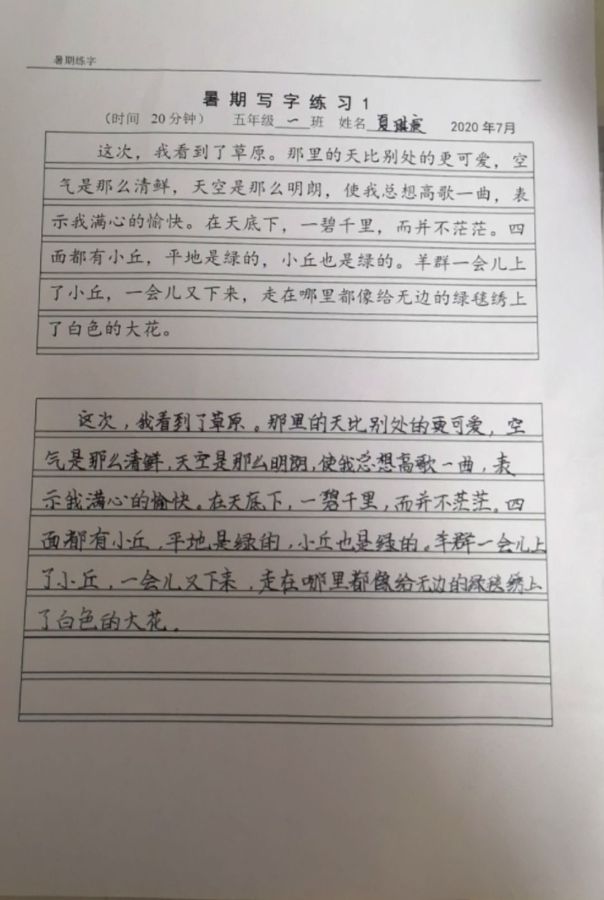 暑期练字
暑期写字练习1
(时间 20分钟) 五年级一班 姓名夏琪 2020年7月
这次，我看到了草原。那里的天比别处的更可爱，空
气是那么清鲜，天空是那么明朗，使我总想高歌一曲，表
示我满心的愉快。在天底下，一碧千里，而并不茫茫。四
面都有小丘，平地是绿的，小丘也是绿的。羊群一会儿上
了小丘，一会儿又下来，走在哪里都像给无边的绿毯绣上
了白色的大花。
这次，我看到了草原。那里的天比别处的更可爱，空
气是那么清鲜，天空是那么明朗，使我总想高歌一曲，表
示我满心的愉快。在天底下，一碧千里，而并不茫茫。四
面都有小丘，平地是绿的，小丘也是绿的。羊群一会儿上
了小丘，一会儿又下来，走在哪里都像给无边的绿毯绣上
了白色的大花。